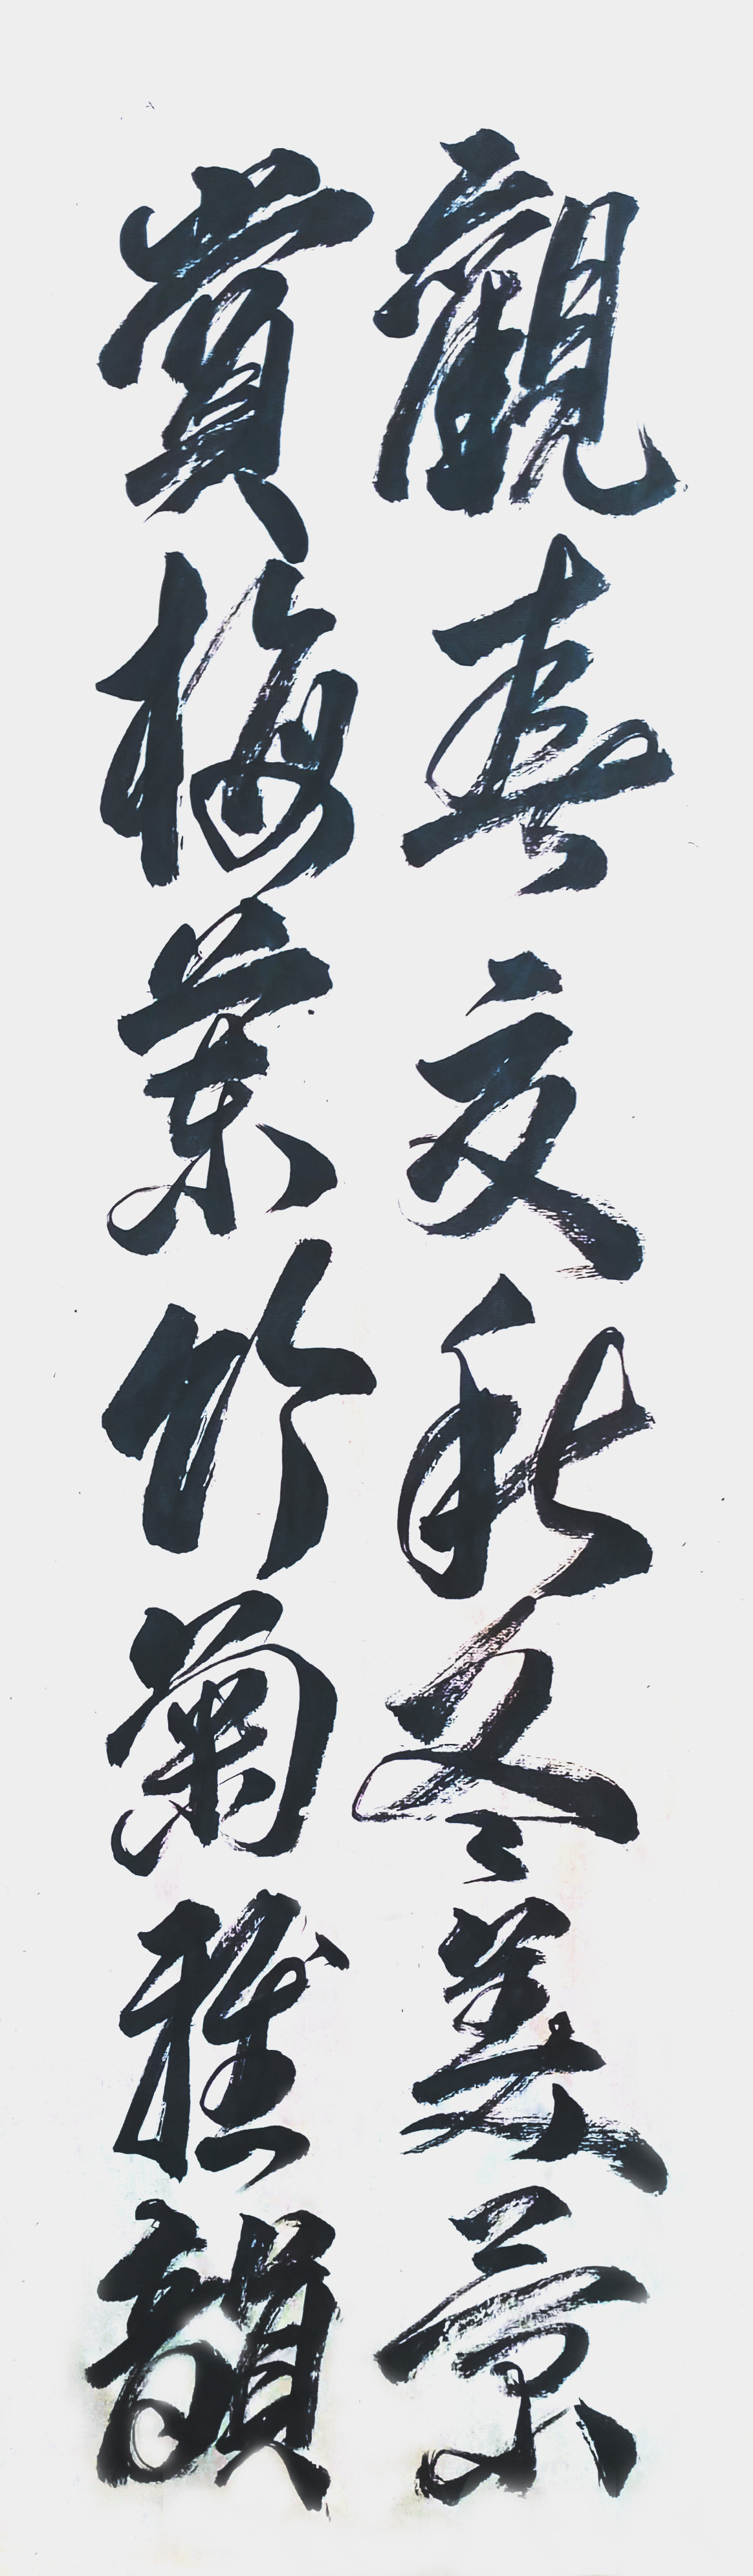 觀春夏秋冬美景
賞梅蘭竹菊雅韻